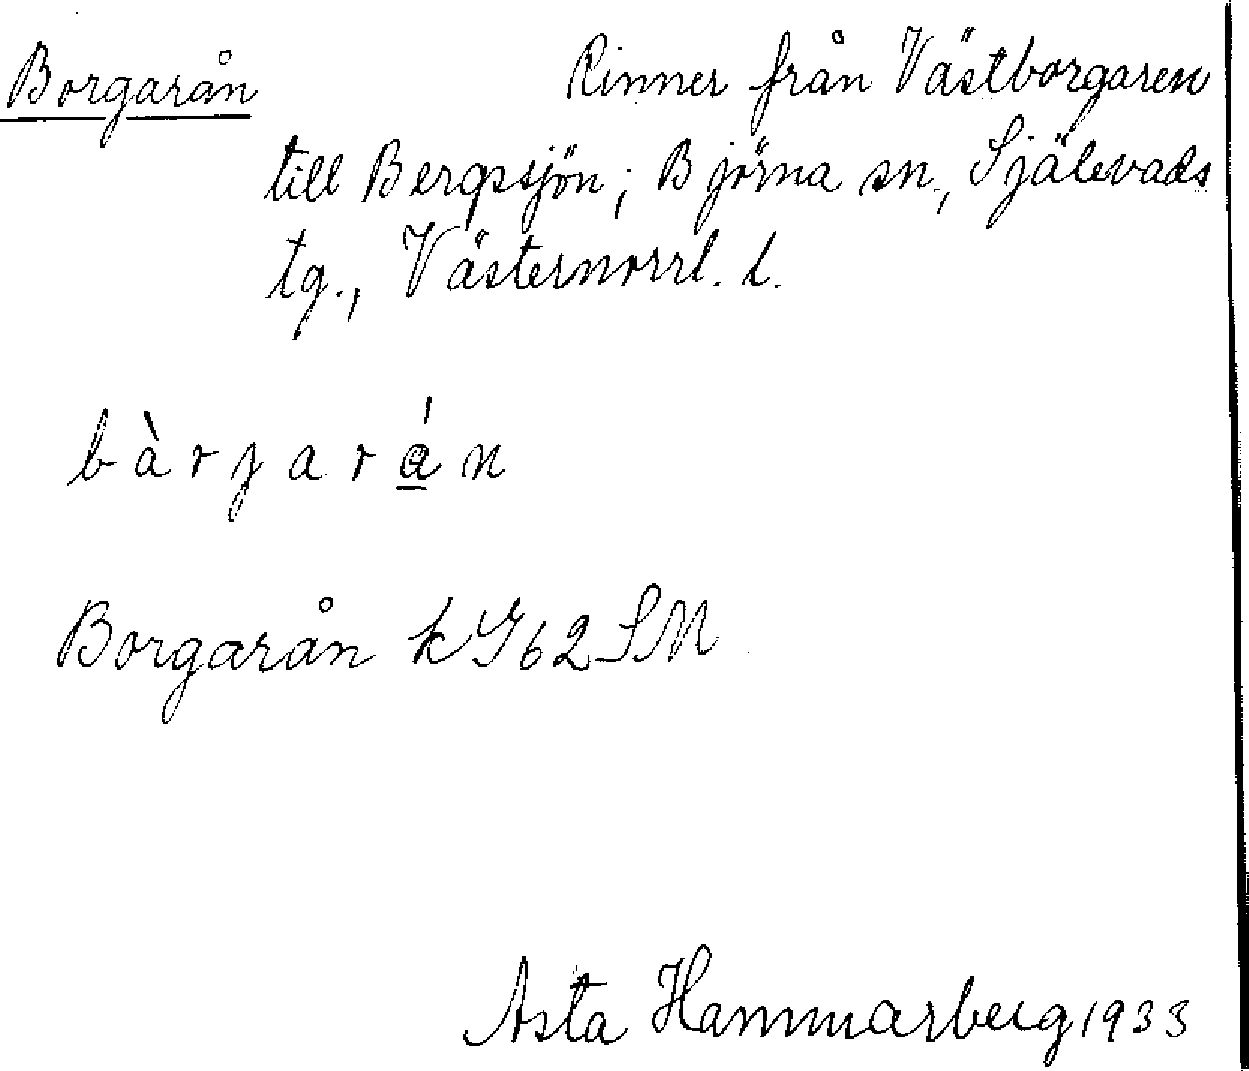 Borgarån Rinner från Västborgaren
till Bergssjön; Björna sn, Själevads
tg., Västernorrl. l.
bàrgarán
Borgarån k G62 SM
Asta Hammarberg 1933